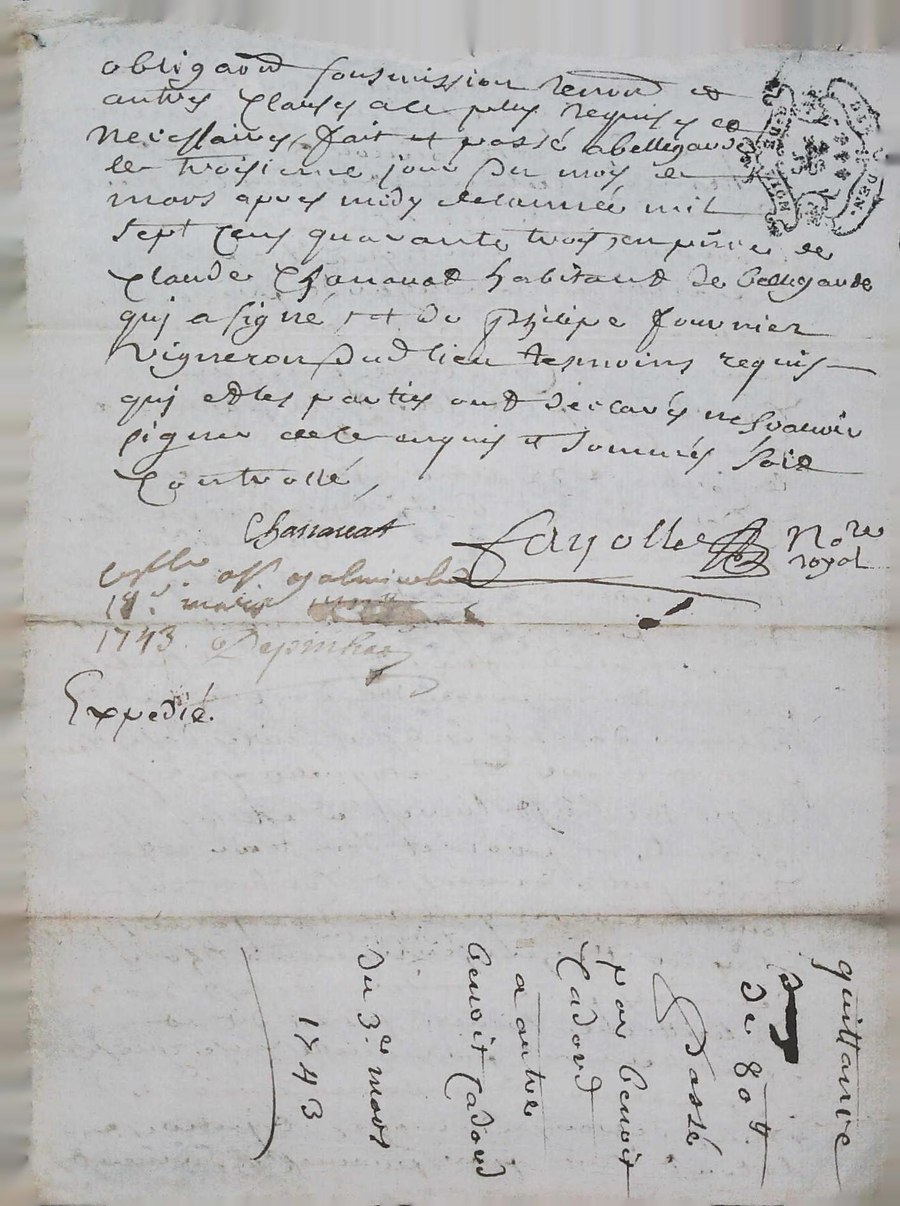 obligaõn sousmission renonõn et
autres clauses a ce plus requises et
necessaires, fait et passé a bellegarde
le troisieme jour du mois de
mars apres midy de lannée mil
sept cens quarante trois, en p̃nce de
claude Chanavat habitant de bellegarde
qui a signé, et de philipe fournier
vigneron dud lieu tesmoins requis
qui et les parties ont declarés ne scavoir
signer de ce enquis et sommés soie
controllé,
Chanavat Fayolle Nore royal
18. mars
1743.
Expedié.
quittance
de 80 ₶
Passé
par benoit
Cadord
a autre
benoit Cadord
du 3e mars
1743
GENERATION
DE LION